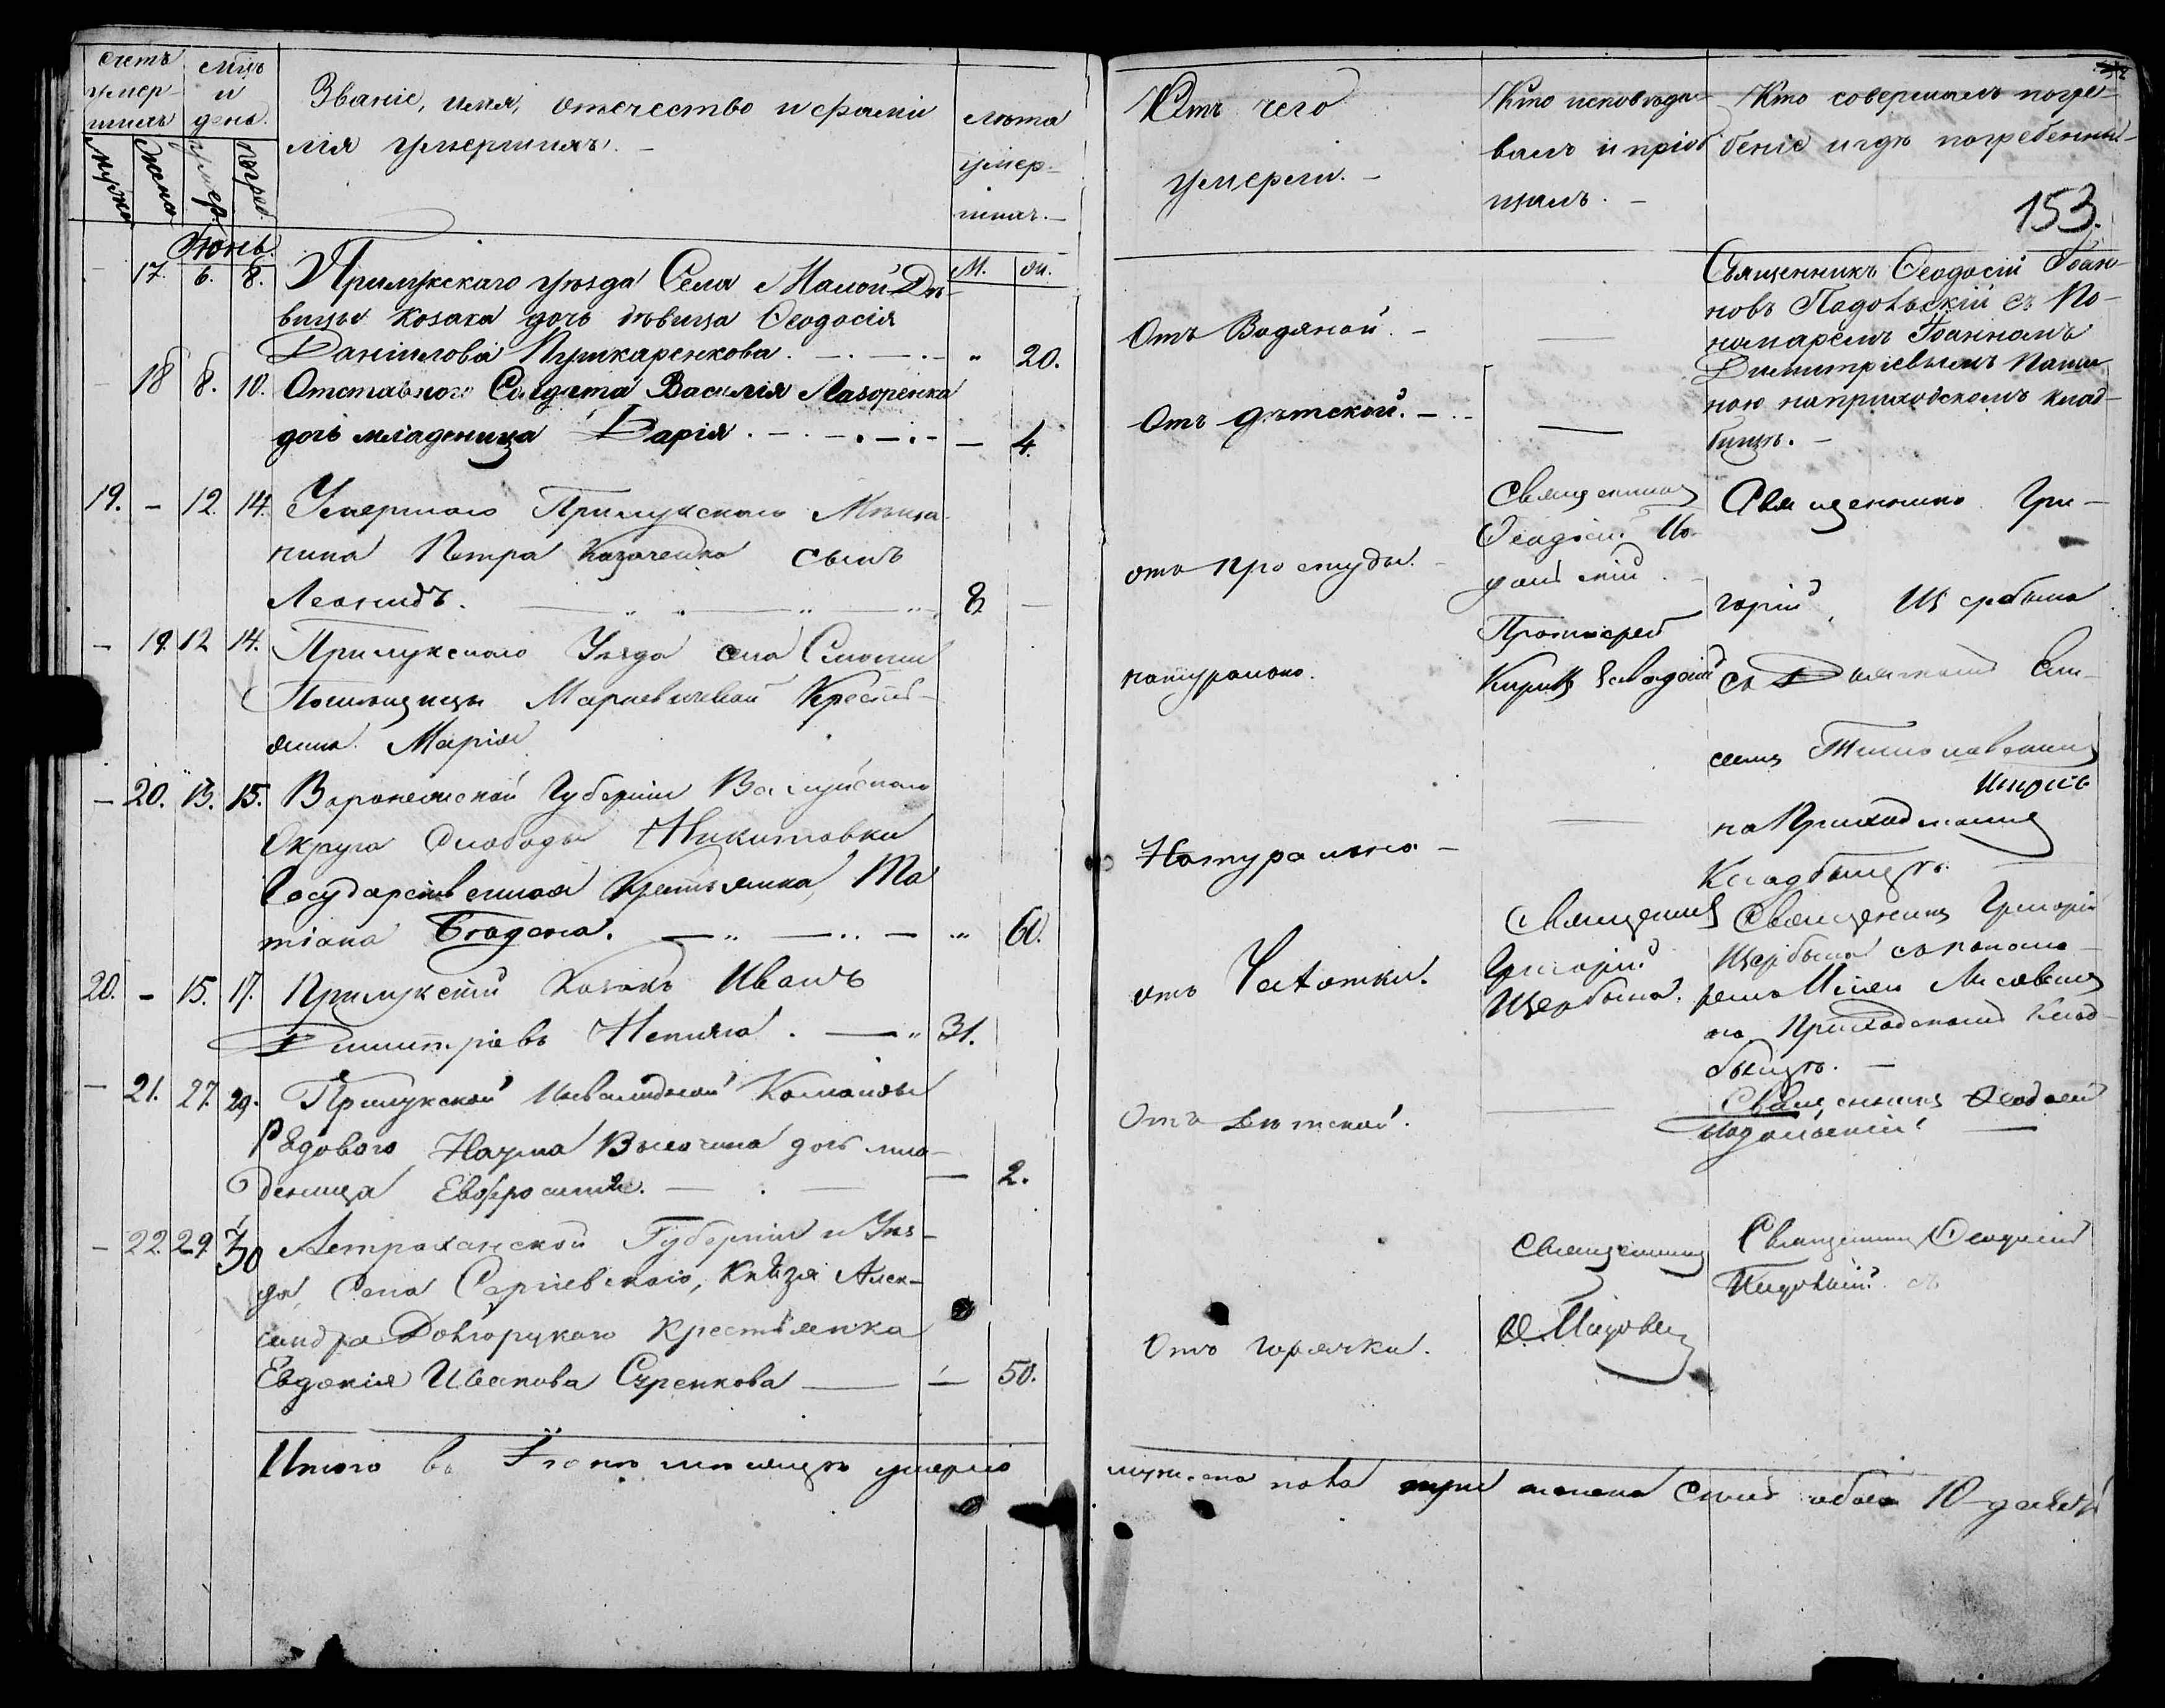 счетъ умер-
шихъ
мцъ
и
день.
мужеска
женска
умер.
погреб.
Званіе, имя, отечество и фами
лія умершихъ. –
лѣта
умер-
ших. –
Отъ чего
умерли. –
Кто исповѣды-
валъ и пріоб
щалъ. –
Кто совершалъ погре-
беніе и гдѣ погребенны –
153.
Іюнь.
М. Ж.
17. 6. 8. Прилукскаго уѣзда Села Малой Дѣ-
вицы козака дочь дѣвица Ѳеодосія
Даніилова Пушкаренкова. „ 20.
Отъ Водяной. –
Священникъ Ѳеодосій Іоан-
новъ Подольскій съ По-
номаремъ Іоанномъ
Димитріевымъ
на приходскомъ клад-
бищѣ. –
18 8. 10. Отставного Солдата Василія Лазоренка
дочь младеница Дарія. – 4.
Отъ дѣтской. –
19. – 12. 14. Умершаго Прилукскаго Мѣща-
нина Петра Казаченка сынъ
Леонидъ. 8. –
отъ простуды. –
Священникъ
Ѳеодосій По-
дольскій.
Священникъ Гри-
горій Щербина
– 19. 12 14. Прилукскаго Уѣзда села
Помѣщицы Маркевичевой Кресть-
янка Марія
натурально.
Протоіерей
Кирилъ
съ
на Приходскомъ
Кладбищѣ.
– 20. 13. 15. Воронежской Губерніи Валуйскаго
Округа Слободы Никитовки
Государственная Крестьянка, Та
тіана „ 60.
Натурально –
20. – 15. 17. Прилукскій Козакъ Иванъ
Димитріевъ 31.
отъ Чахотки.
Священникъ
Григорій
Щербина.
Священникъ Григорій
Щербина съ понома-
ремъ
на Приходскомъ Клад-
бищѣ. –
– 21. 27. 29. Прилукской Инвалидной Команды
Рядового Наума дочь мла-
деница Евфросинія. – 2.
Отъ дѣтской.
Священникъ Ѳеодосій
Подольскій.
– 22. 29. 30 Астраханской Губерніи и Уѣз-
да, Села Сергіевскаго, Князя Алек-
сандра Долгорукаго крестьянка
Евдокія Иванова – 50.
Отъ горячки.
Священникъ
Священникъ Ѳеодосій
Подольскій. съ
Итого въ Іюнѣ мѣсяцѣ умерло
мужеска пола три женска семь обоего 10